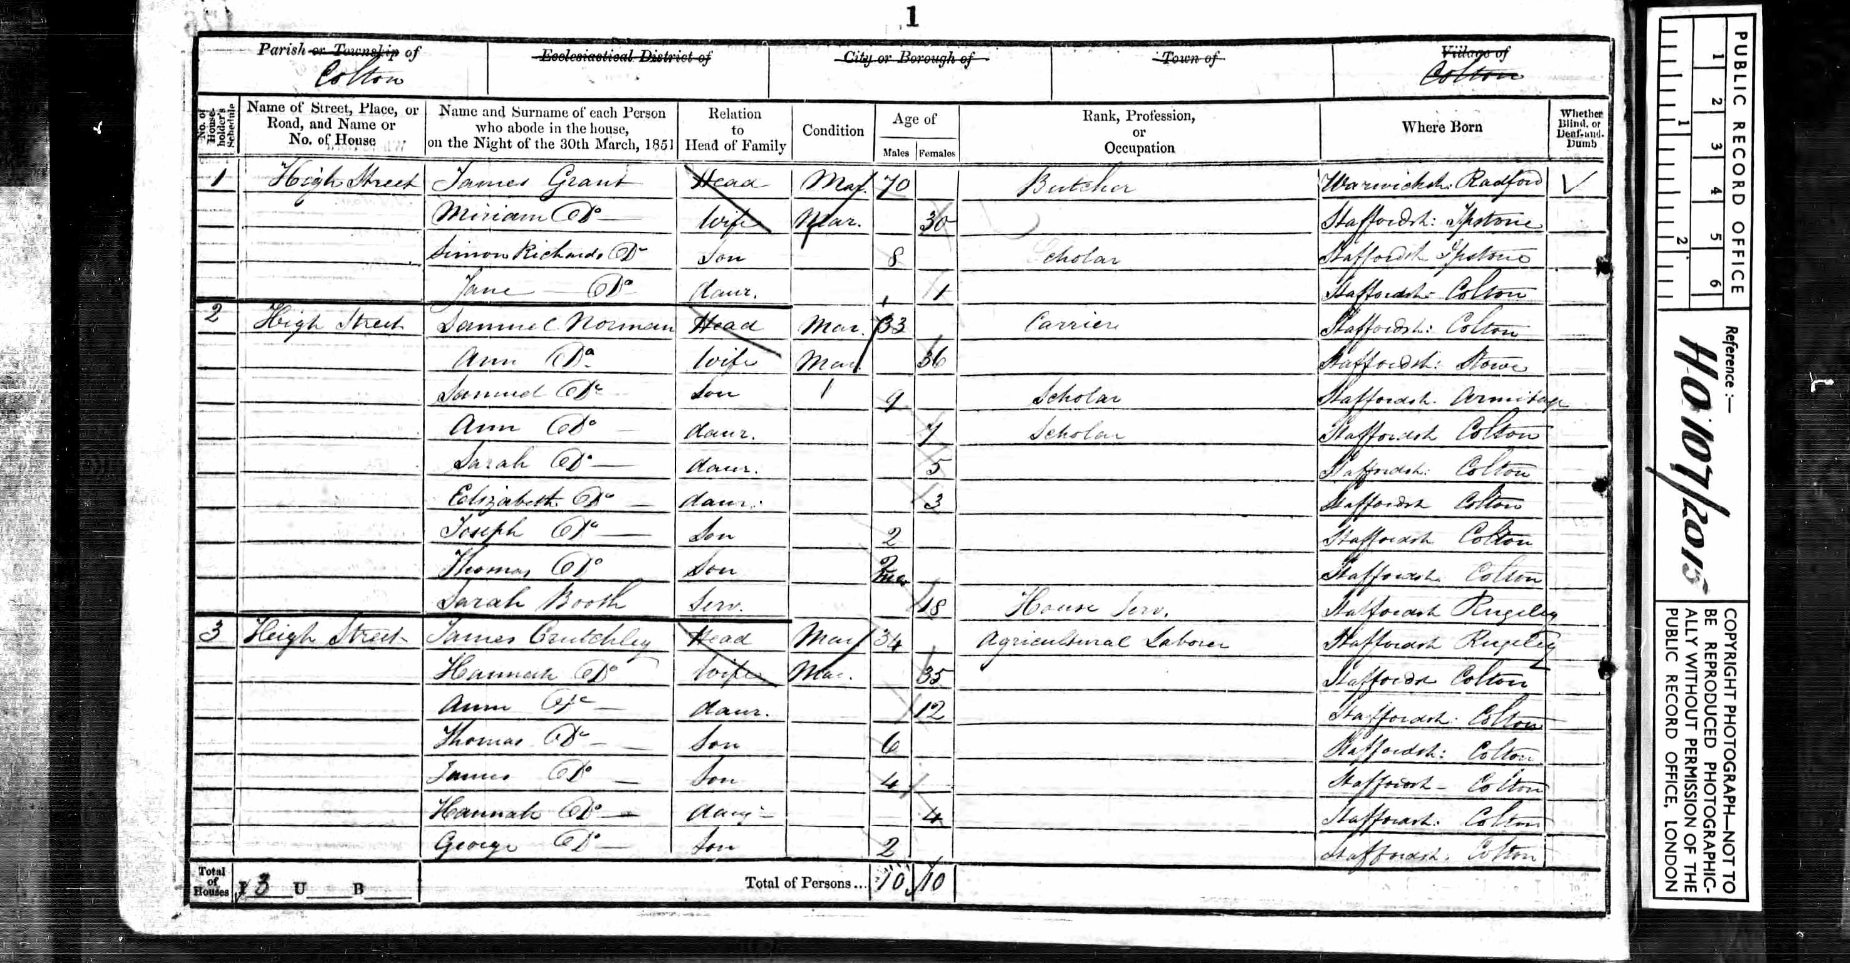 1
Parish or Township of
Colton
Ecclesiastical District of
City or Borough of
Town of
Village of
Colton
No. of House-holder's Schedule
Name of Street, Place, or Road, and Name or No. of House
Name and Surname of each Person who abode in the house, on the Night of the 30th March, 1851
Relation to Head of Family
Condition
Age of
Males Females
Rank, Profession, or Occupation
Where Born
Whether Blind, or Deaf-and-Dumb
1 High Street James Grant Head Mar. 70 Butcher Warwicksh: Radford
Miriam Do Wife Mar. 30 Staffordsh: Ipstone
Simon Richards Do Son 8 Scholar Staffordsh Ipstone
Jane Do daur. 1 Staffordsh: Colton
2 High Street Samuel Norman Head Mar. 33 Carrier Staffordsh: Colton
Ann Do Wife Mar. 36 Staffordsh: Stowe
Samuel Do Son 9 Scholar Staffordsh. Armitage
Ann Do daur. 7 Scholar Staffordsh Colton
Sarah Do daur. 5 Staffordsh: Colton
Elizabeth Do daur. 3 Staffordsh Colton
Joseph Do Son 2 Staffordsh Colton
Thomas Do Son 2 mo Staffordsh Colton
Sarah Booth Serv. 18 House Serv. Staffordsh Rugeley
3 High Street James Crutchley Head Mar 34 Agricultural Laborer Staffordsh Rugeley
Hannah Do Wife Mar. 35 Staffordsh Colton
Ann Do daur. 12 Staffordsh: Colton
Thomas Do Son 6 Staffordsh: Colton
James Do Son 4 Staffordsh - Colton
Hannah Do daur 4 Staffordsh: Colton
George Do Son 2 Staffordsh. Colton
Total of Houses I 3 U B Total of Persons... 10 10
PUBLIC RECORD OFFICE
1 2 3 4 5 6
1 2
Reference :—
HO 107/2015
COPYRIGHT PHOTOGRAPH—NOT TO
BE REPRODUCED PHOTOGRAPHIC-
ALLY WITHOUT PERMISSION OF THE
PUBLIC RECORD OFFICE, LONDON